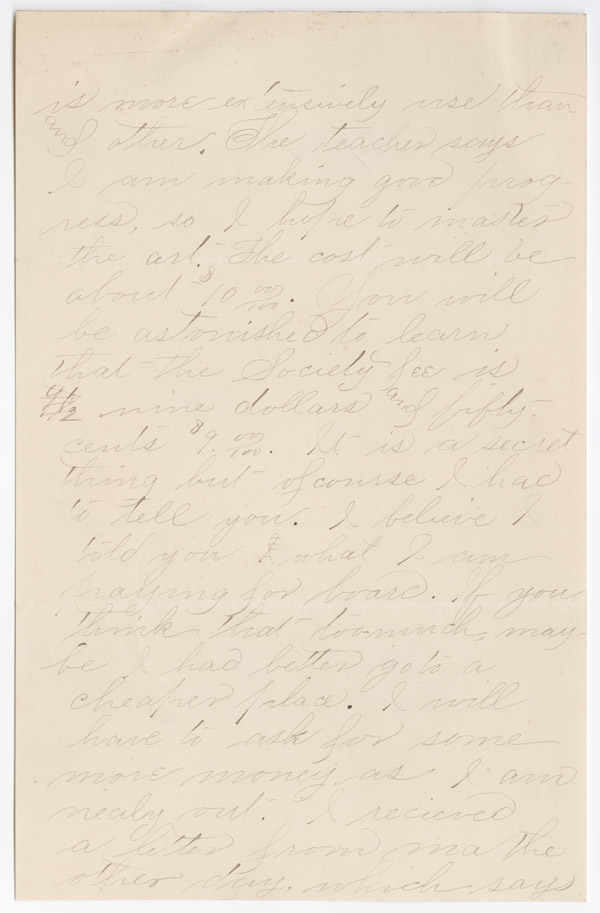 is more extensively use than
any other. The teacher says
I am making good prog-
ress, so I hope to master
the art. The cost will be
about $10 00/100. You will
be astonished to learn
that the Society fee is
9 1/2 nine dollars and fifty-
cents $9. 00/100. It is a secret
thing but ofcourse I had
to tell you. I believe I
told you what I am
praying for board. If you
think that too-much, may
be I had better go to a
cheaper place. I will
have to ask for some
more money, as I am
nealy out. I recieved
a letter from ma the
other day. which says